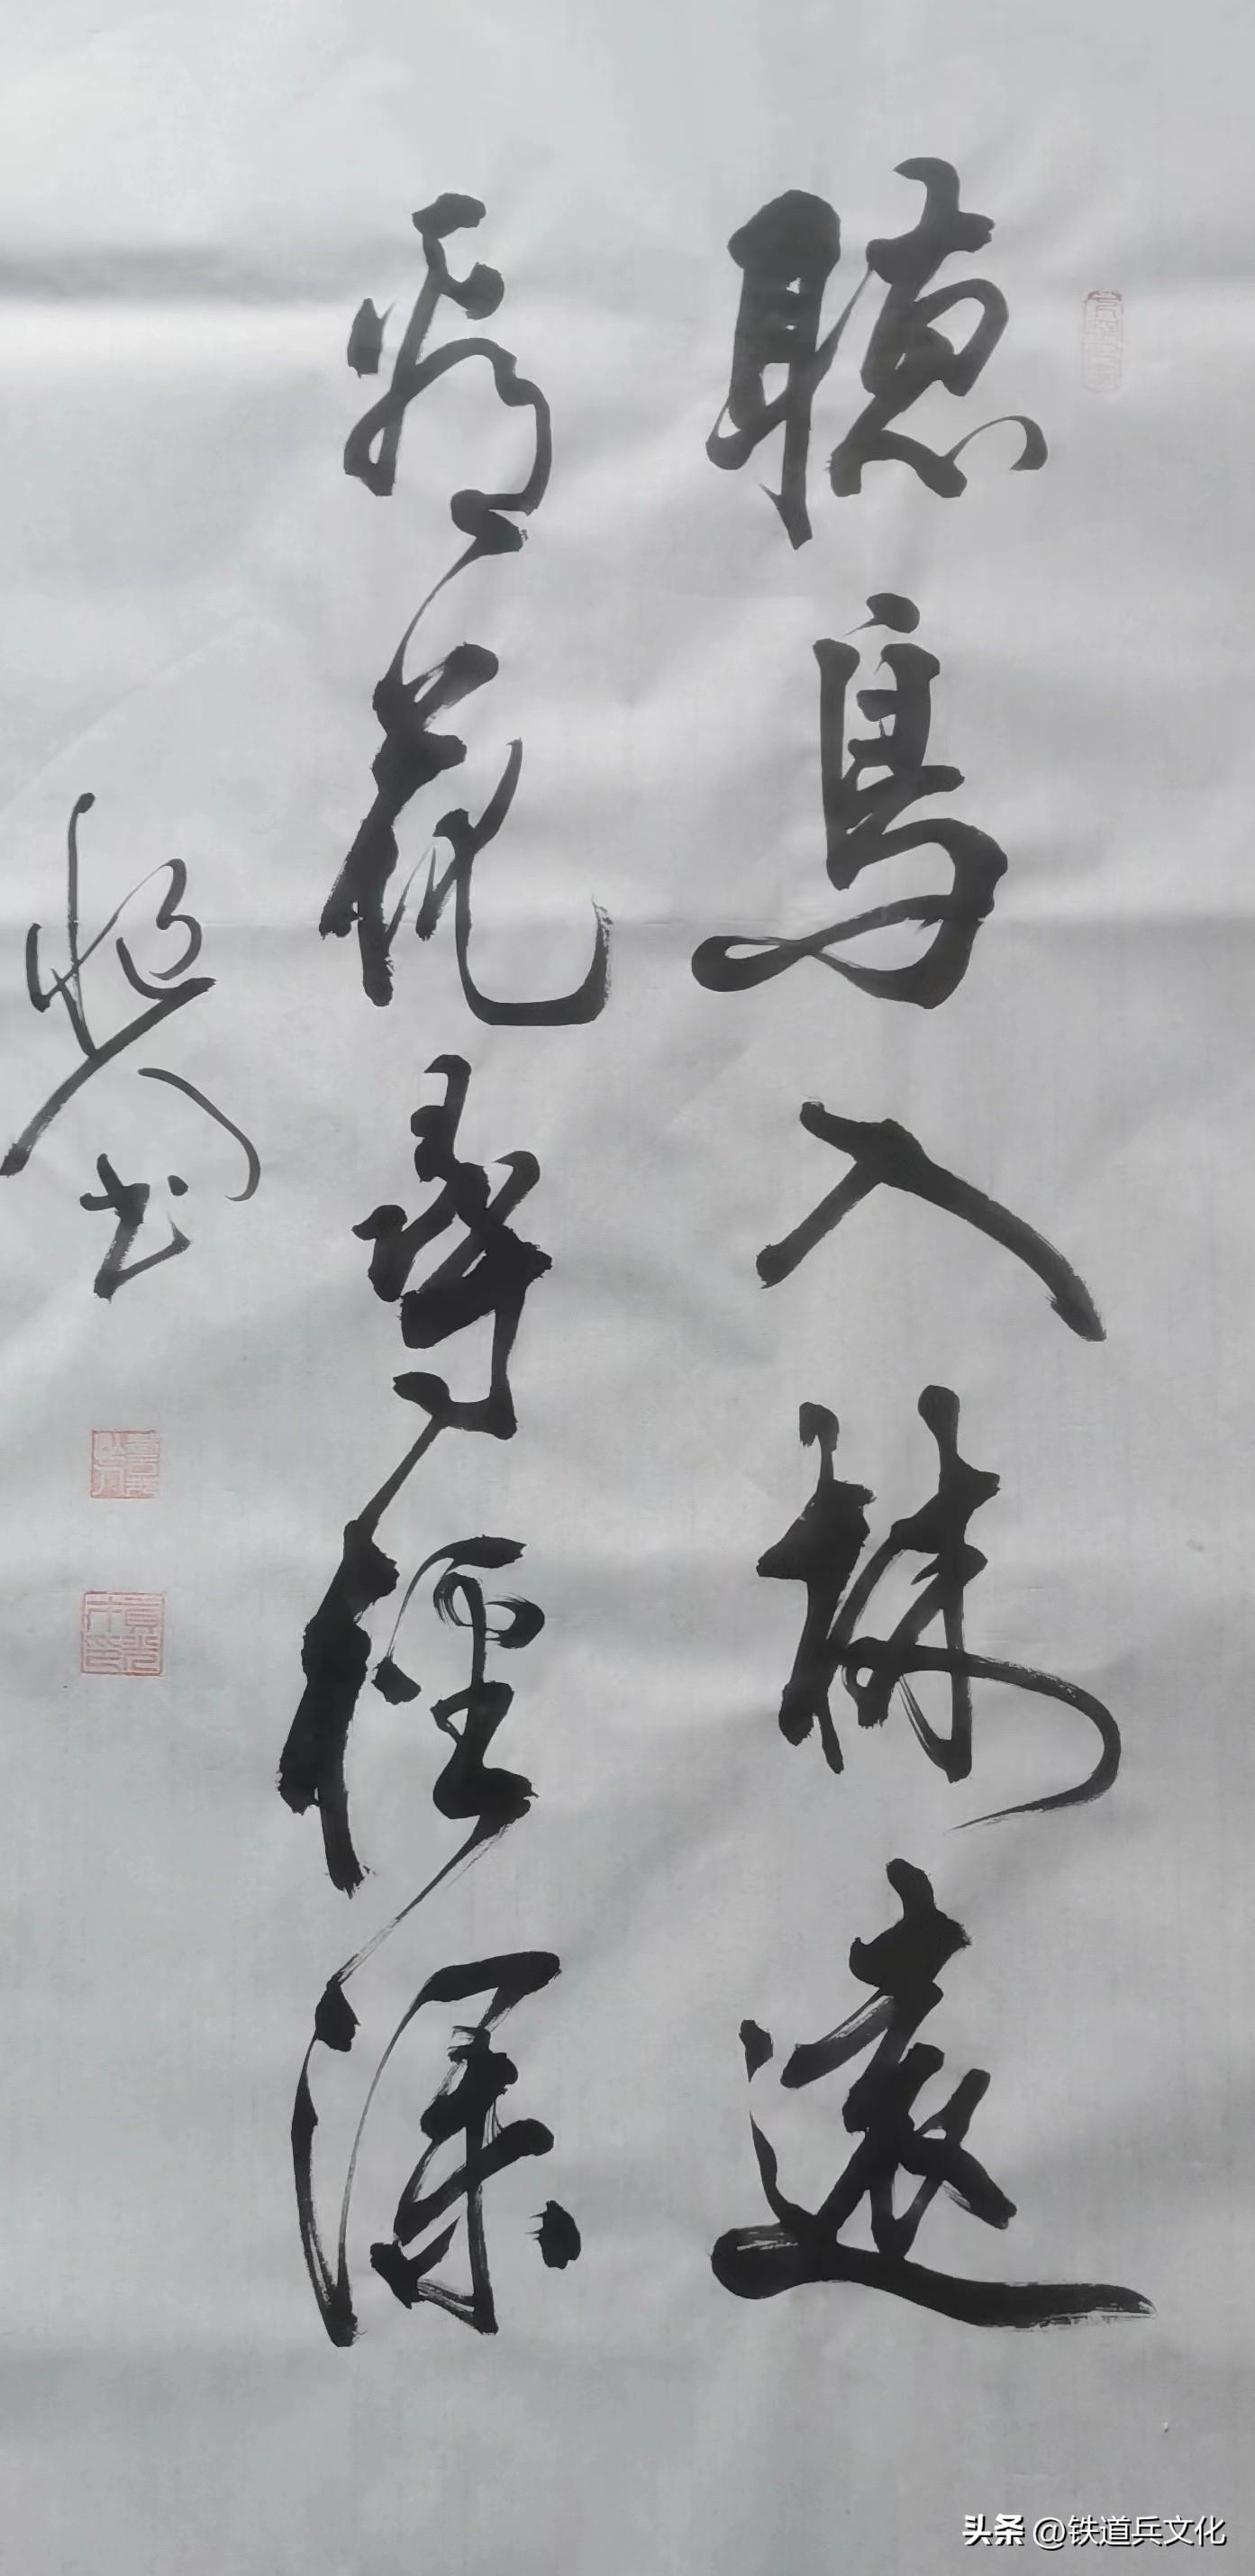 聴鳥入林遠
看花尋徑深
书
头条 @铁道兵文化